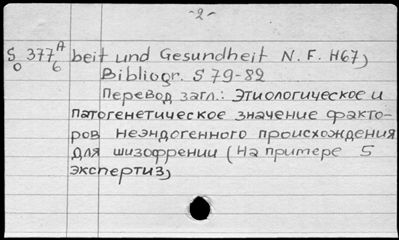 -2-
S 377 A beit und Gesundheit N. F. H67)
0 6 Bibliogr. S 79-82
Перевод загл.: Этиологическое и
патогенетическое значение факто-
ров неэндогенного происхождения
для шизофрении (На примере 5
экспертиз)